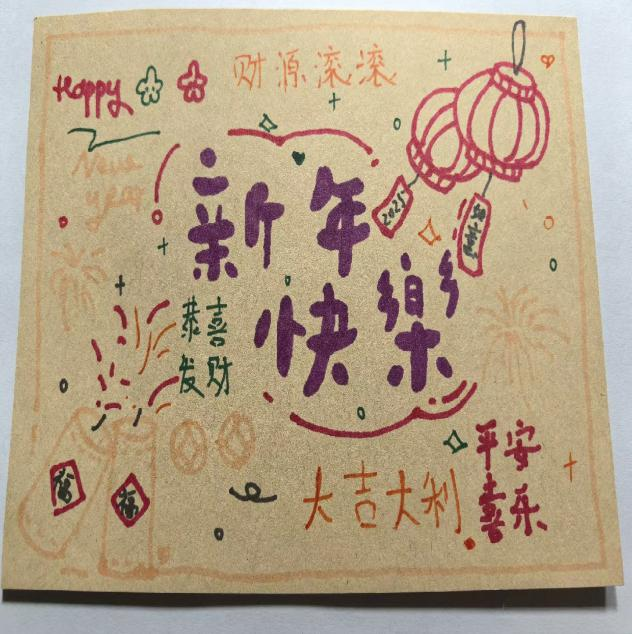 财源滚滚
Happy
New
year
新年
快樂
2025
恭喜
发财
大吉大利
平安
喜乐
福